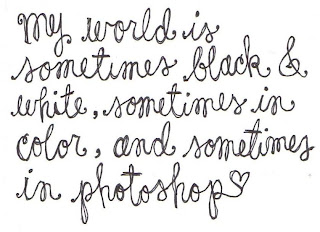 My world is
sometimes black &
white, sometimes in
color, and sometimes
in photoshop♡